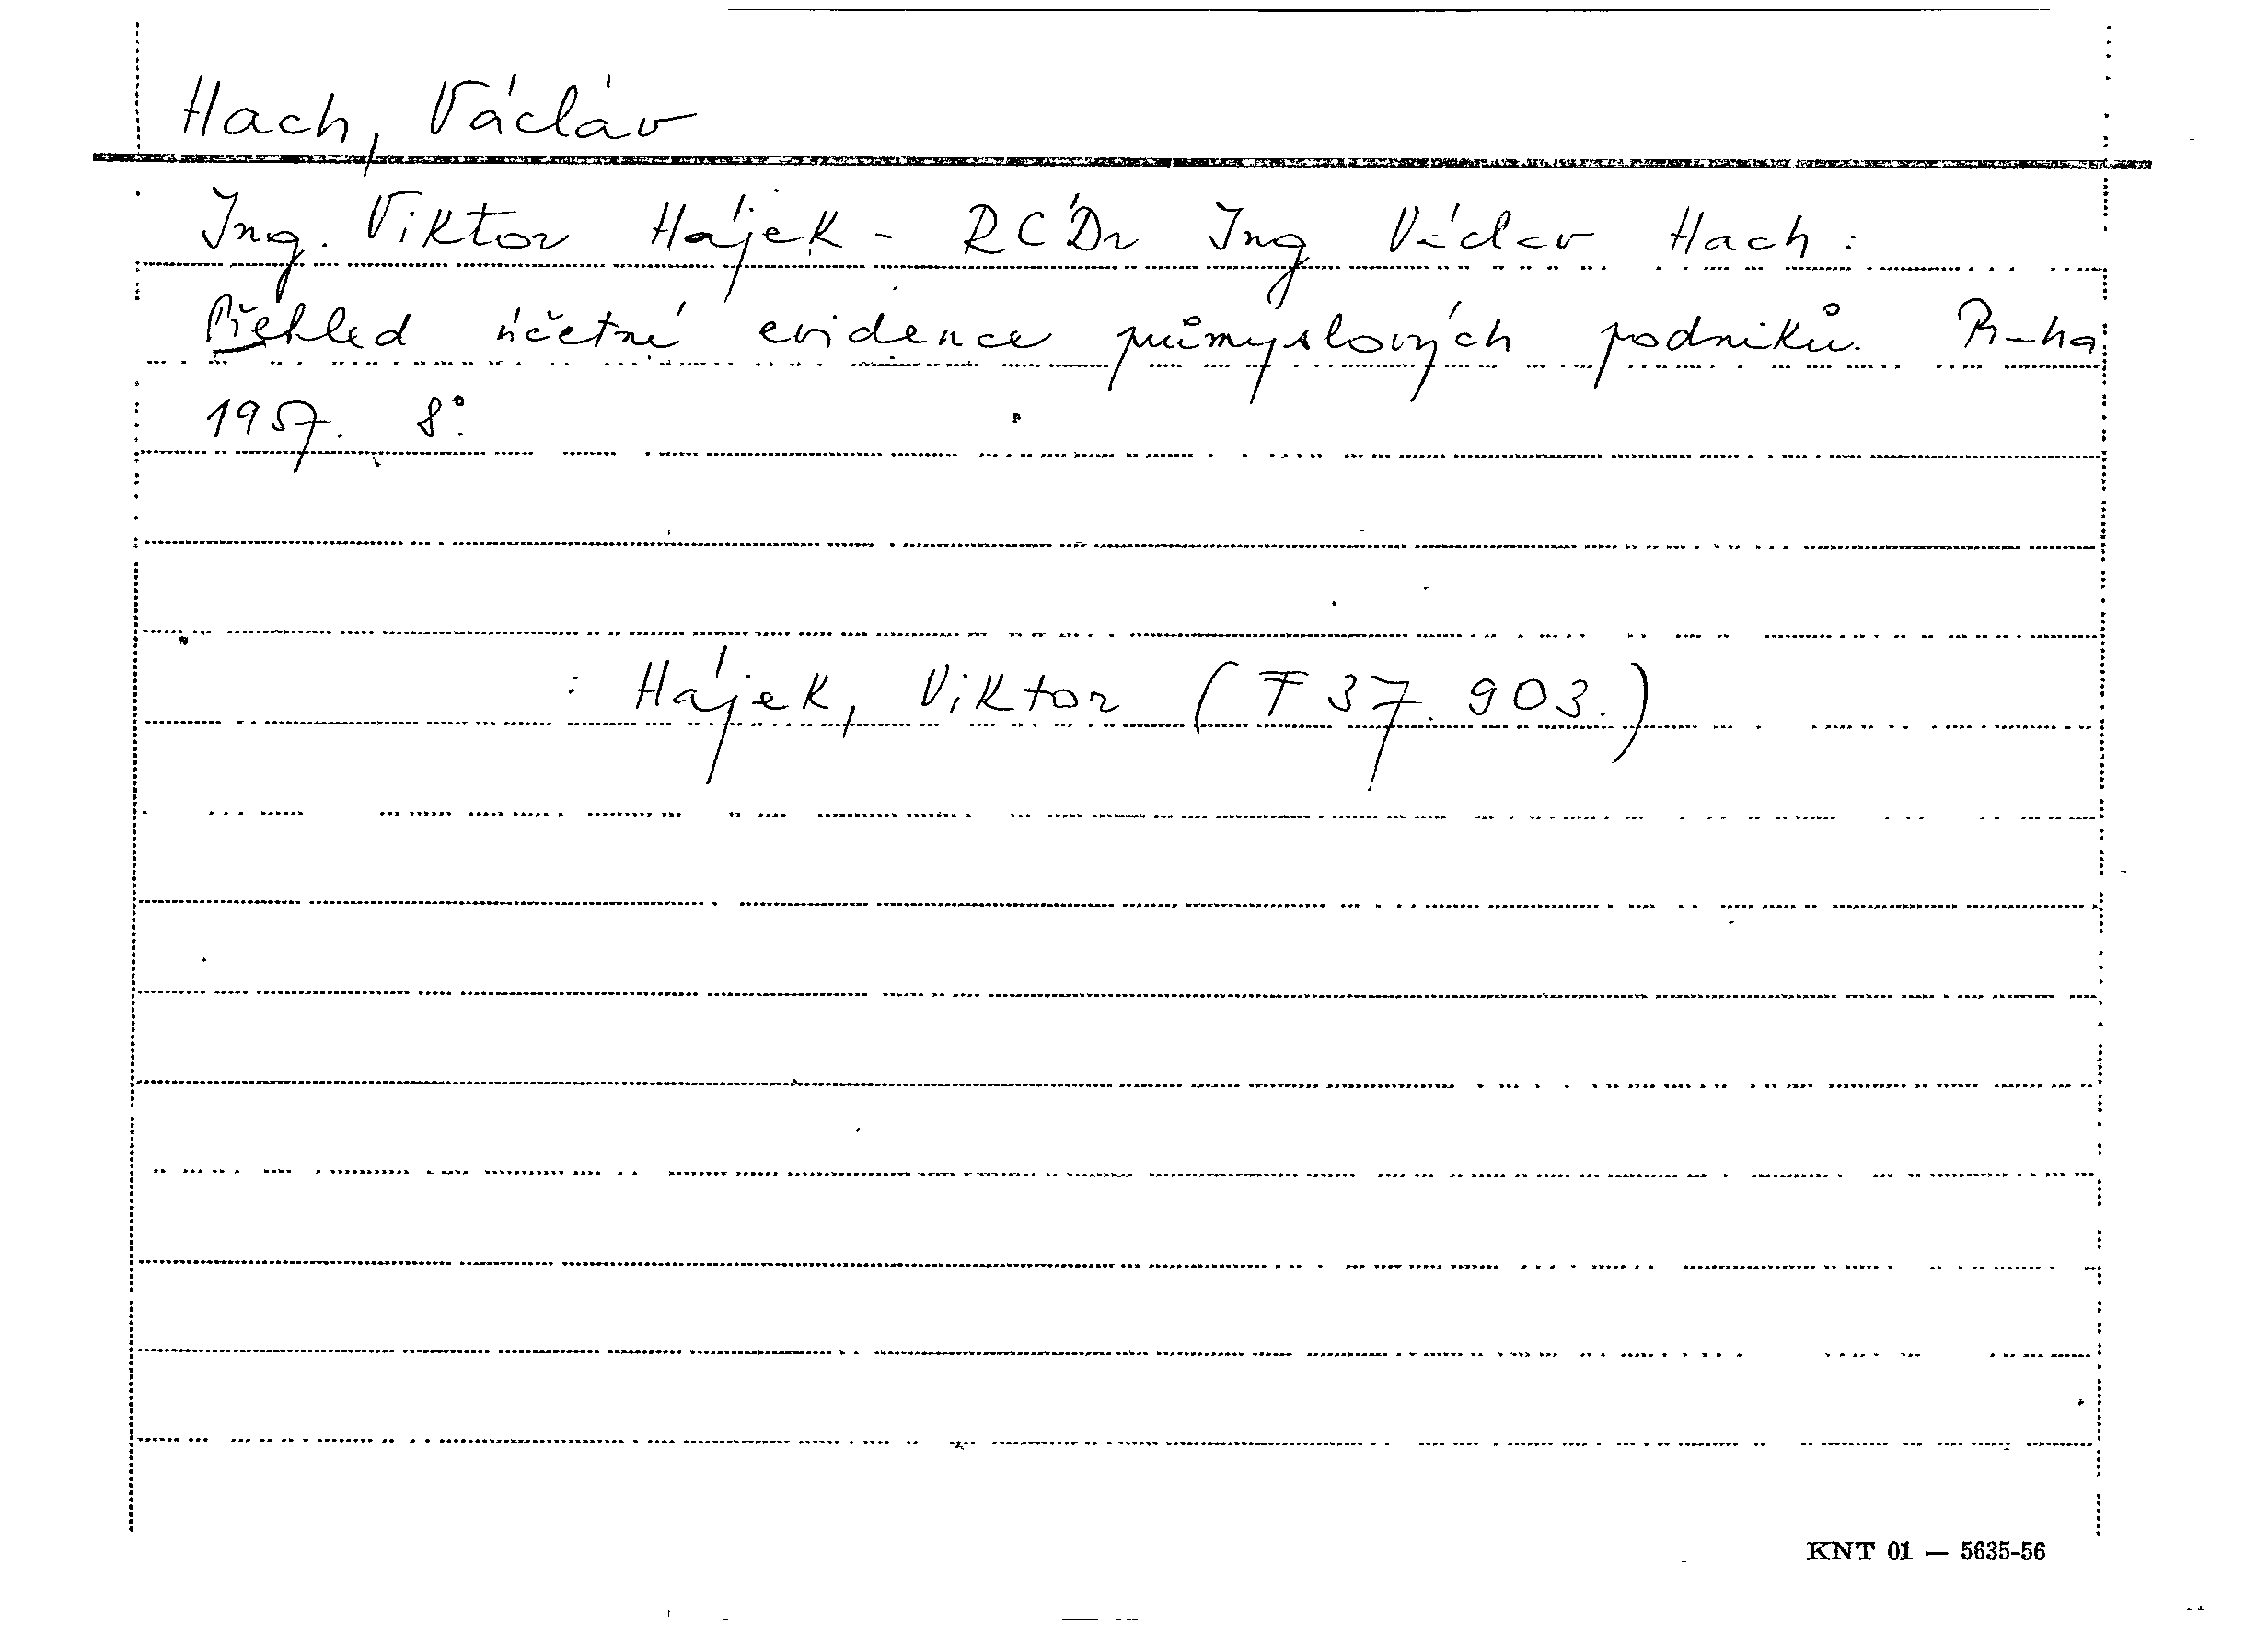 Hach, Václáv
Ing. Viktor Hájek - RCDr Ing Václav Hach:
Přehled účetní evidence průmyslových podniků. Praha
1957. 8°.
: Hájek, Viktor (F 37.903.)
KNT 01 — 5635-56